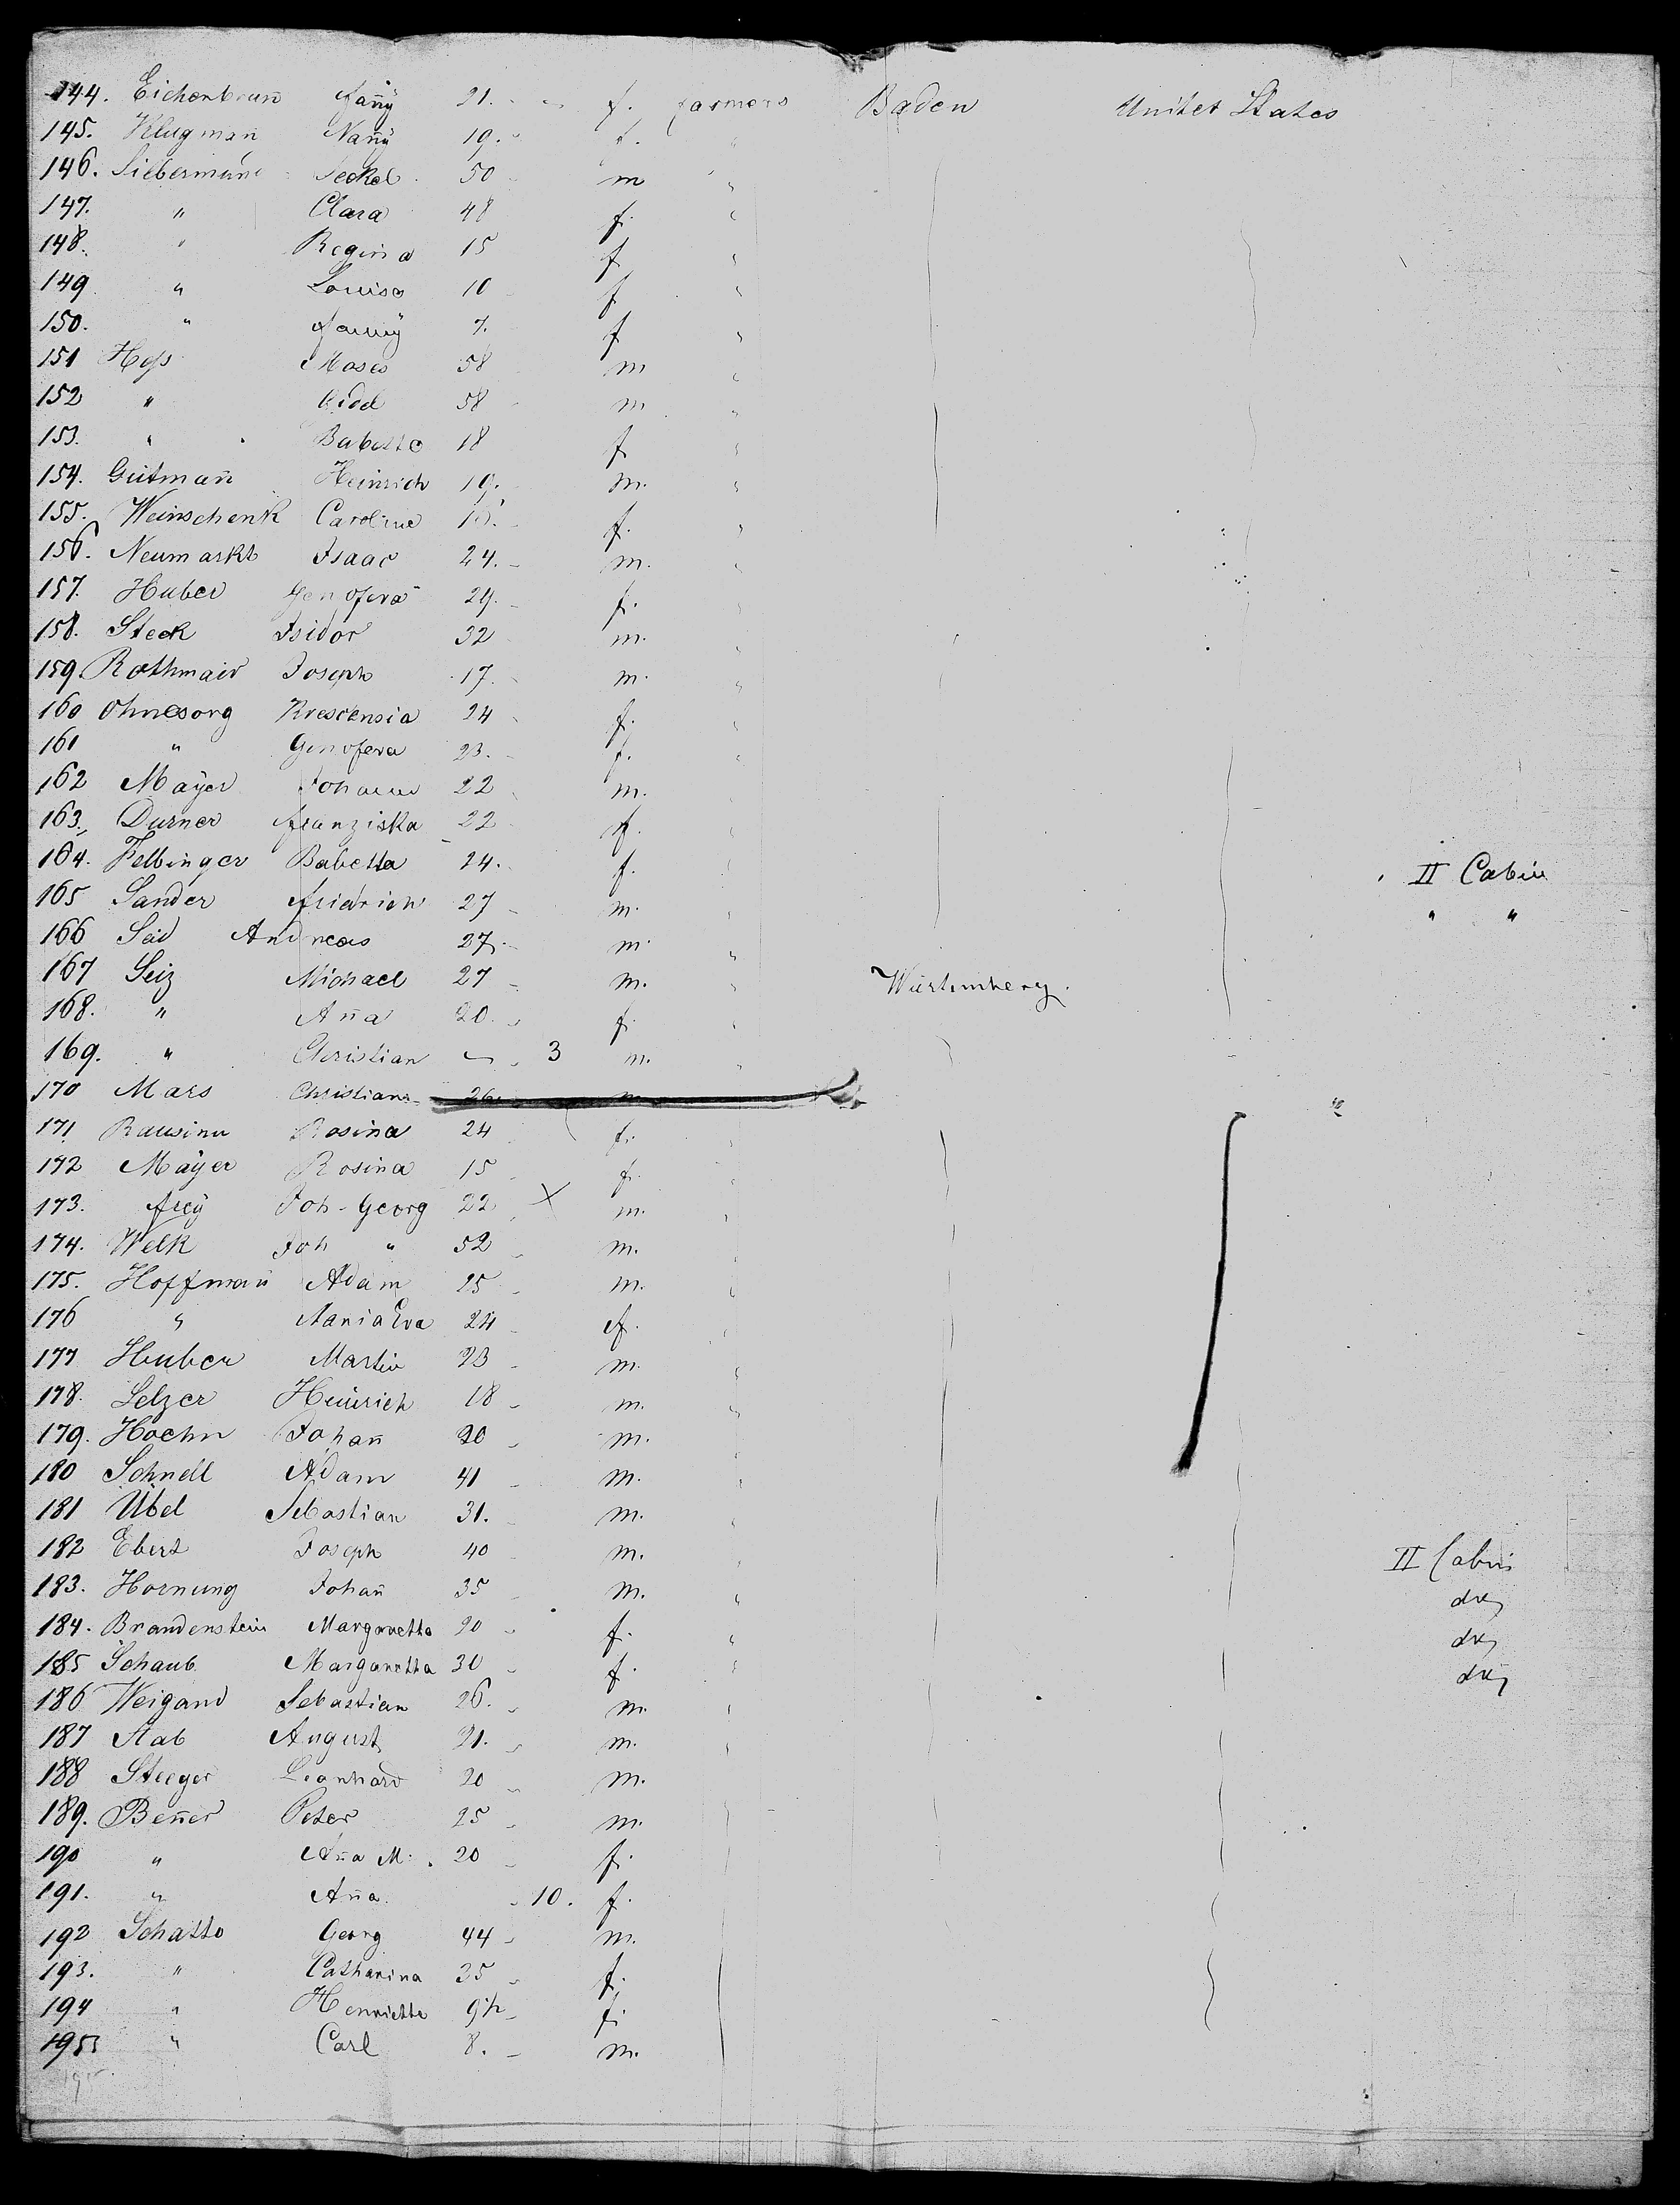 144. Eichenbrun̄ Fan̄ÿ 21. " f. farmers Baden Unitet States
145. Klugman̄ Nan̄ÿ 19. " f. "
146. Liebermann Seckel 50 " m "
147. " Clara 48 f. "
148. " Regina 15 f "
149 " Louisa 10 f "
150. " Fannÿ 7. f "
151 Hess Moses 58 m "
152 " 58 m "
153. " Babette 18 f "
154. Gutman̄ Heinrich 19. m. "
155. Weinschenk Caroline f. "
156. Neumarkt Isaac 24. m. "
157. Huber Genofeva 29. f. "
158. Steck Isidor 32 m. "
159. Rothmair Joseph 17. m. "
160 Ohnesorg Krescensia 24 f. "
161 " Genofeva 23. f. "
162 Maÿer Johann 22 m.
163. Durner Franziska 22 f. "
164. Felbinger Babetta 24. f. II Cabin
165 Sander Friedrich 27 m. " "
166 Andreas 27. m. "
167 Seiz Michael 27 m. " Würtemberg.
168. " An̄a 20. f. "
169. " Christian 3 m. "
170 Mars Christian 26. m. "
171 Rosina 24 f. "
172 Maÿer Rosina 15 f.
173. Freÿ Joh. Georg 22 X m. "
174. Welk Joh " 52 m.
175. Hoffman̄ Adam 25 m. "
176 " Maria Eva 24 f. "
177 Huber Martin 23 m. "
178. Selzer Heinrich 18 m. "
179. Hoehn Johan̄ 20 m. "
180 Schnell Adam 41 m. "
181 Übel Sebastian 31. m. "
182 Ebert Joseph 40 m. " II Cabin
183. Hornung Johan̄ 35 m. " do
184. Brandenstein Margaretta 20 f. " do
185 Schaub Margaretta 30 f. " do
186 Weigand Sebastian 26. m. "
187 Stab August 21. m. "
188 Steeger Leonhard 20 m.
189. Ben̄er Peter 25 m.
190 " An̄a M. 20 f.
191. " An̄a 10. f.
192 Schatto Georg 44 m.
193. " Catharina 35 f.
194 " Henriette 9½ f.
195 " Carl 8. m.
195.